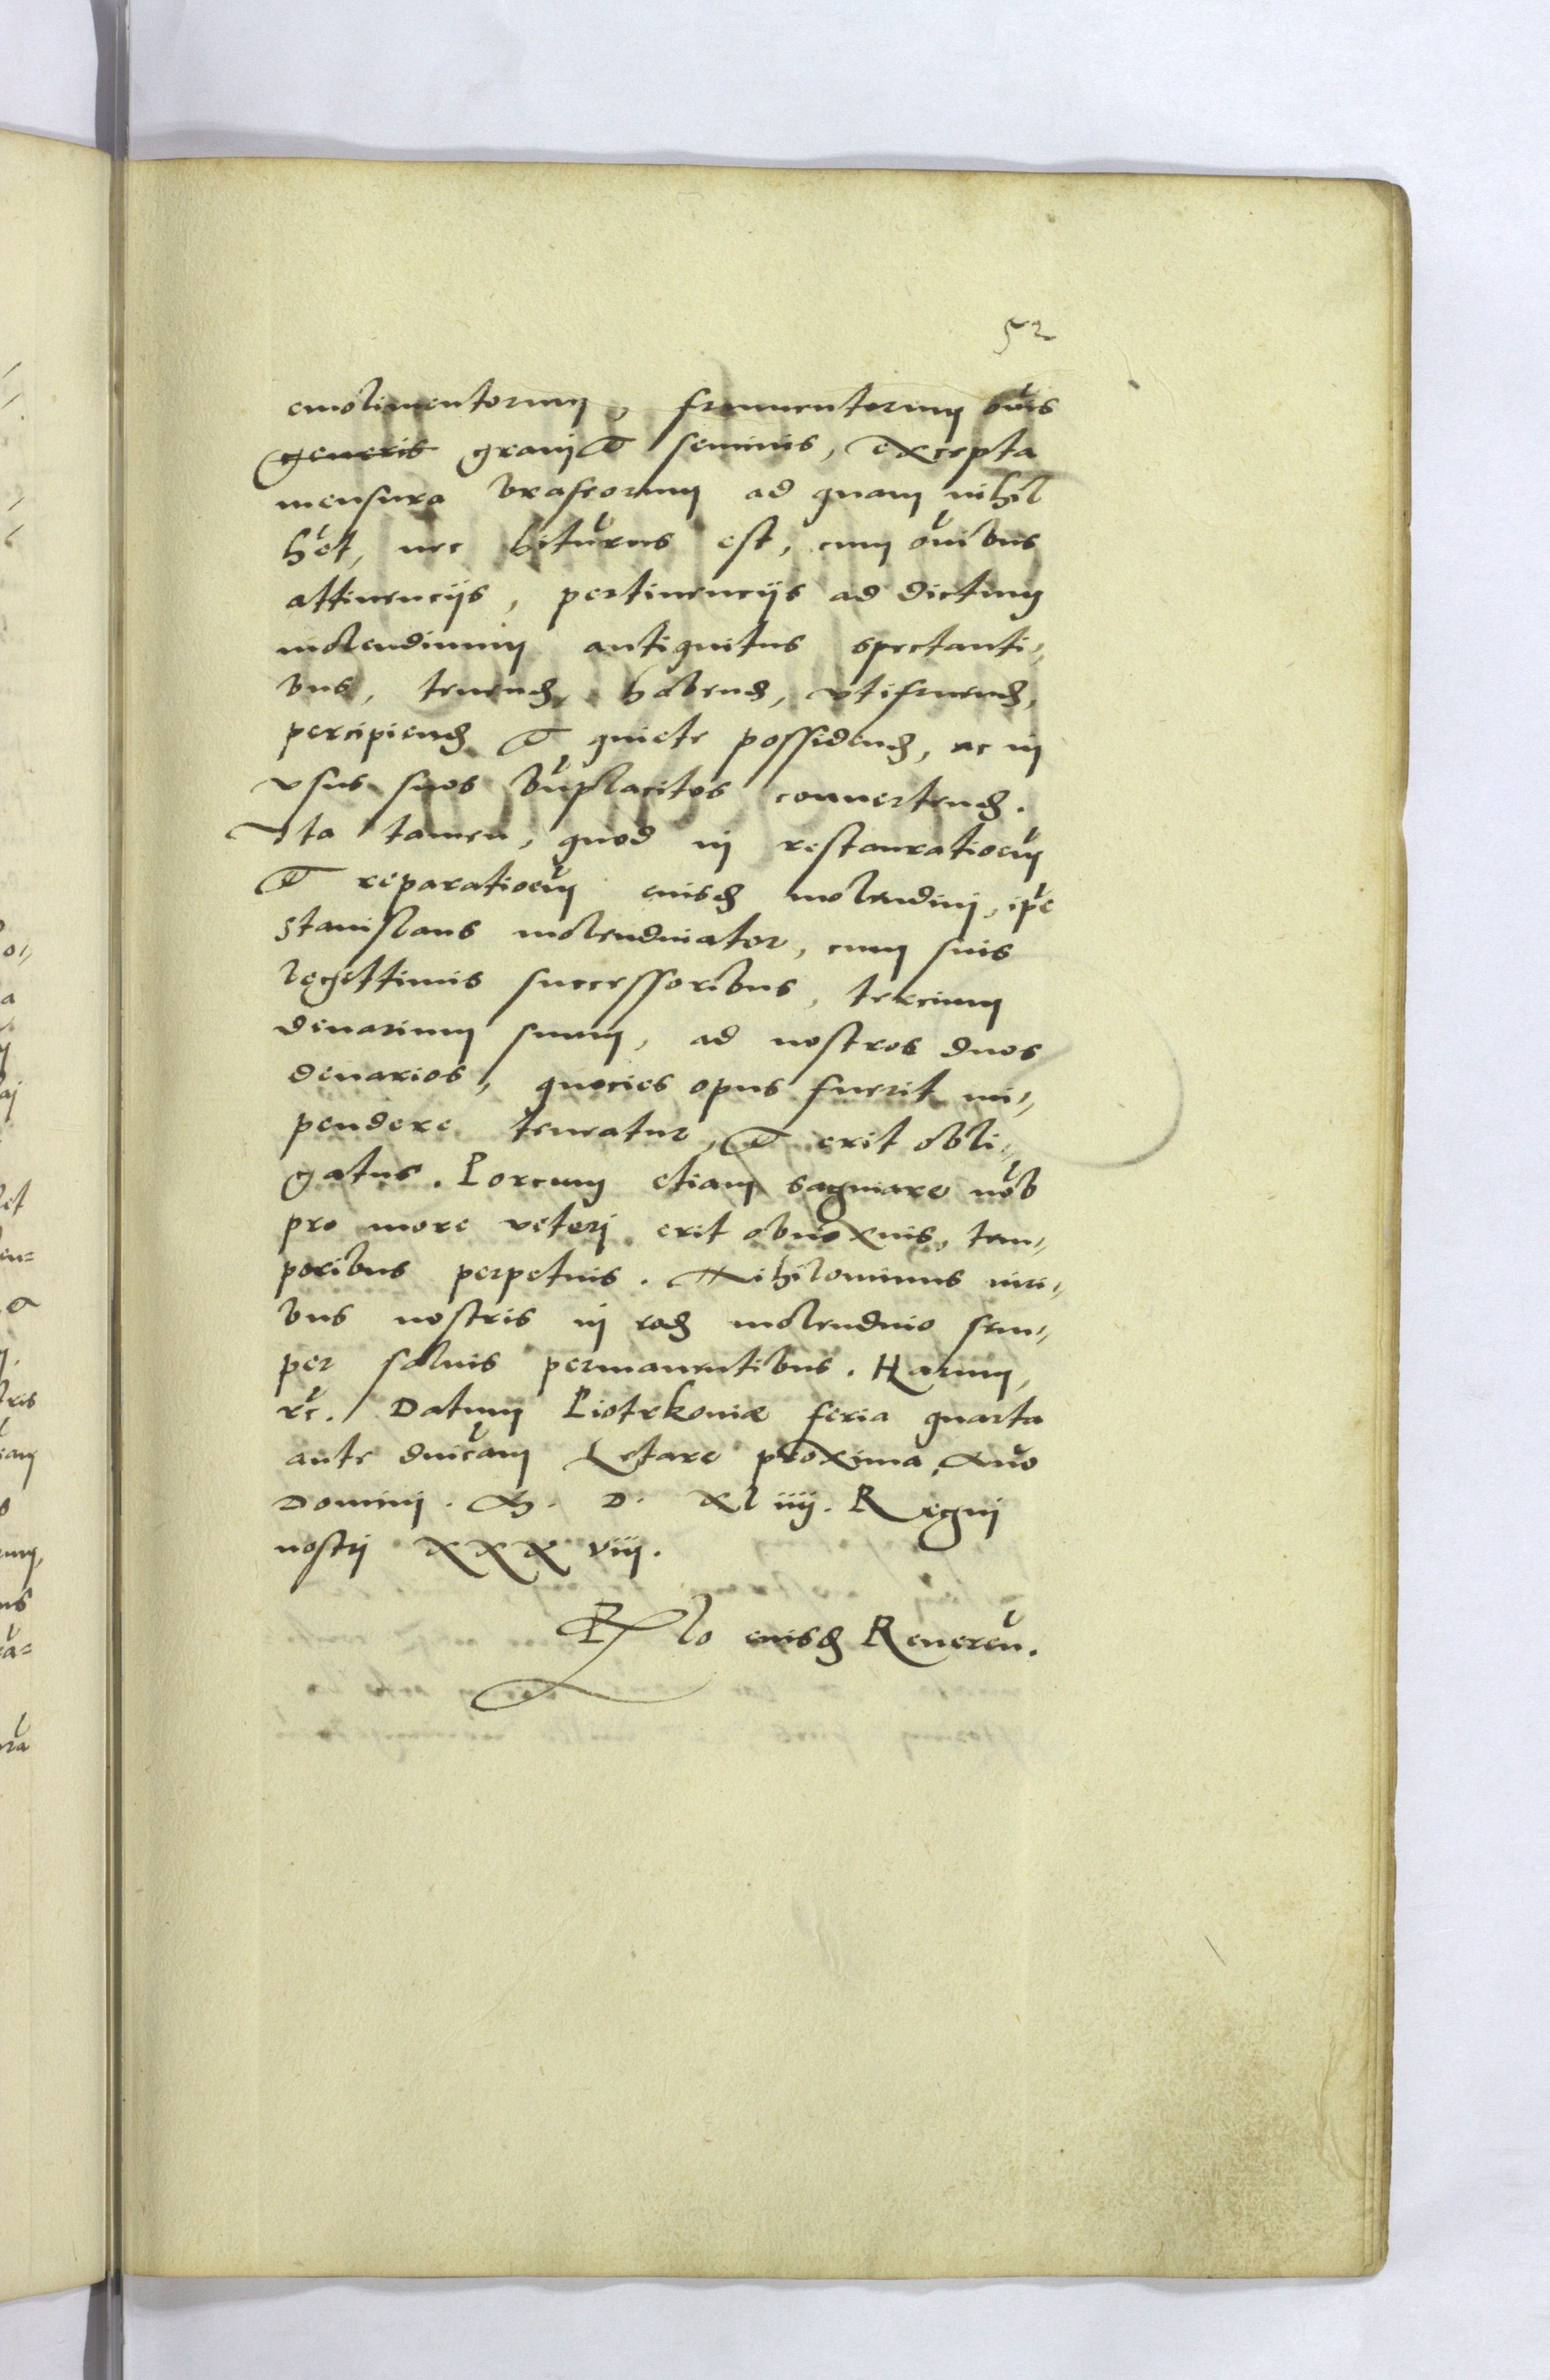 52
emolimentorum, frumentorum o̅m̅is
generis granj et seminis, excepta
mensura braseorum ad quam nihil
ħet, nec hiturus est, cum o̅m̅ibus
attinencijs, pertinencijs ad dictum
molendinum antiquitus spectanti,,
bus, tenend, habend, vtifruend,
percipiend et quiete possidend, ac in
vsus suos b̅n̅placitos conuertend.
Ita tamen, quod in restauratioem
et reparatioem eiusd molendinj, ipe
Stanislaus molendinator, cum suis
legittimis successoribus, tercium
denarium suum, ad nostros duos
denarios, quocies opus fuerit im,,
pendere teneatur, et erit obli,,
gatus. Porcum etiam saginare nob
pro more veterj erit obnoxius, tem,,
poribus perpetuis. Nihilominus iuri,,
bus nostris in eod molendino sem,,
per saluis permanentibus. Harum,
rc. Datum Piotrkoniæ feria quarta
ante dnicam Letare proxima, Anno
Dominj. M. D. XL iiij. Regnj
nostrj XXX viij.
Rlo eiusd Reueren.